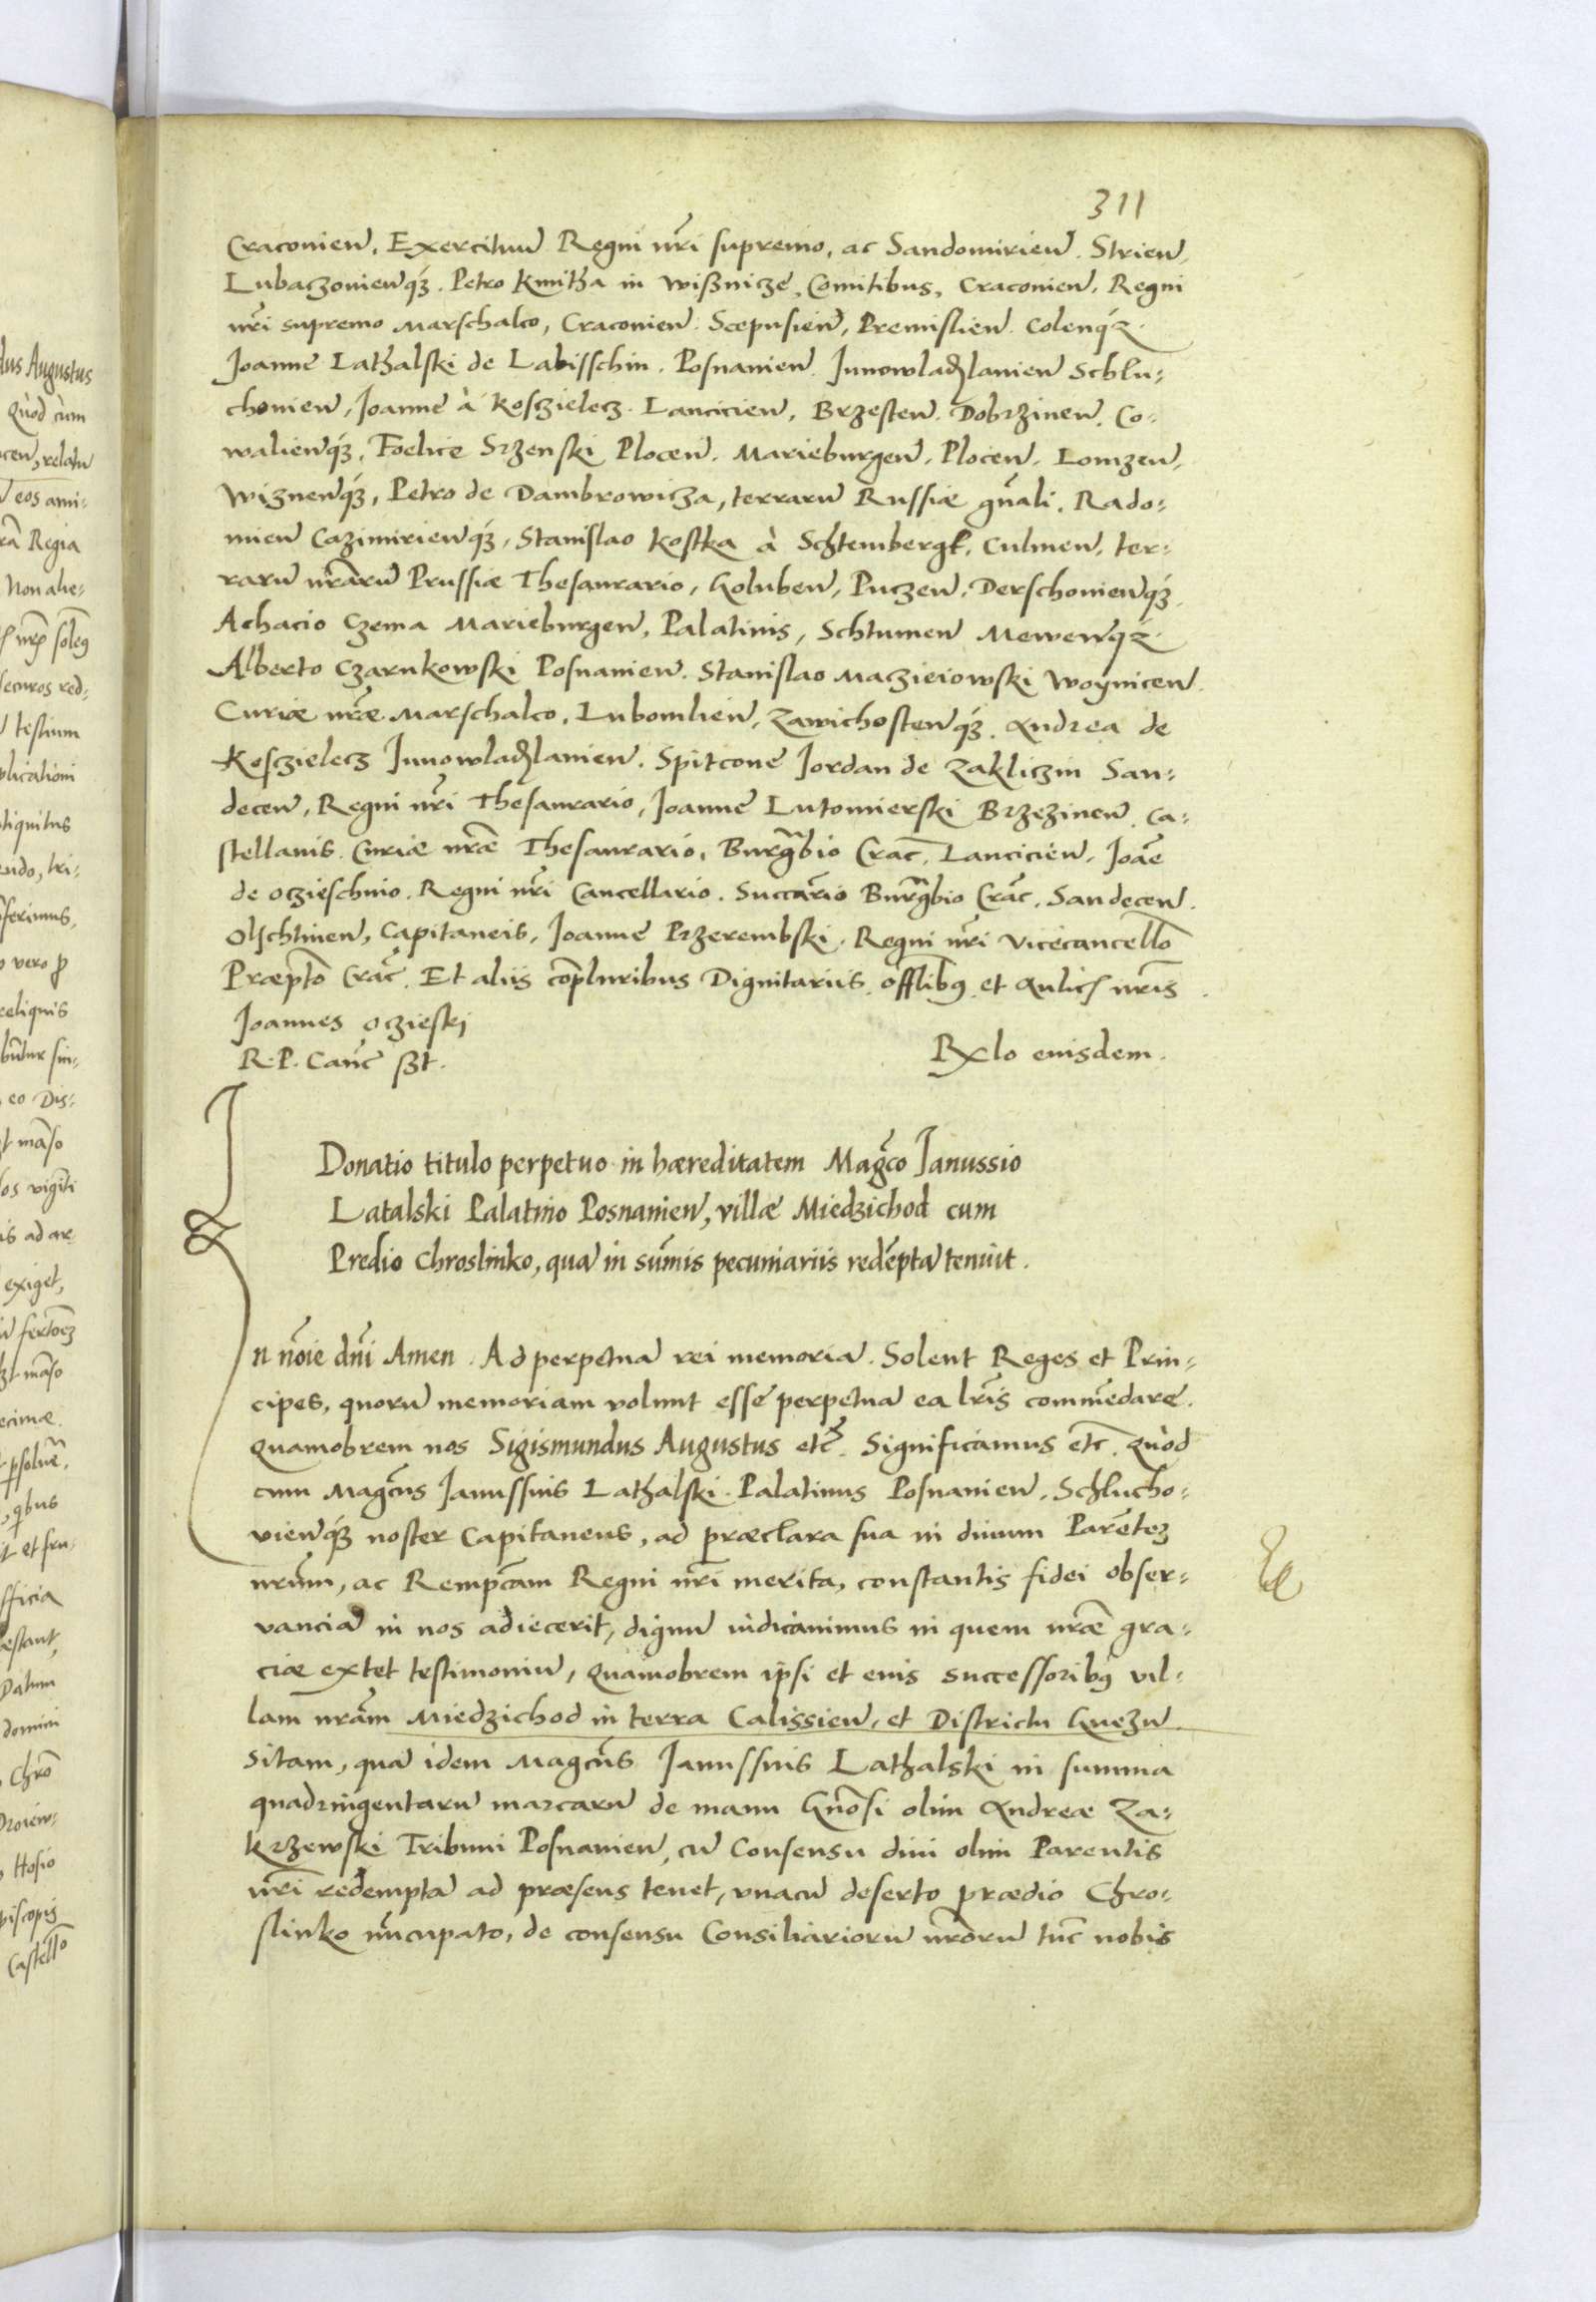 311
Craconien, Exercituu Regni nr̃i supremo, ac Sandomirien. Strien,
Lubaczonienqȝ. Petro Kmitha in Wißnicze, Comitibus, Craconien, Regni
nr̃i supremo Marschalco, Craconien. Scepusien, Premislien. Colenqȝ.
Joanne Lathalski de Labisschin. Posnanien. Junowladzlanien Schlu:
chonien, Joanne à Kosczielecz. Lancicien, Brzesten. Dobrzinen. Co:
walienqȝ, Foelice Srzenski Plocen. Marieburgen, Plocen. Lomzen,
Wiznenqȝ, Petro de Dambrowicza, terraru Russiæ gñali. Rado:
mien Cazimirienqȝ, Stanislao Kostka à Schtembergk, Culmen, ter:
raru nr̃aru Prussiæ Thesaurario, Goluben, Puczen, Derschonienqȝ,
Achacio Czema Marieburgen, Palatinis, Schtumen Mewenqȝ.
Alberto Czarnkowski Posnanien. Stanislao Maczieiowski Woynicen.
Curiæ nr̃æ Marschalco, Lubomlien, Zawichostenqȝ. Andrea de
Kosczielecz Junowladzlanien. Spitcone Jordan de Zakliczin San:
decen, Regni nr̃i Thesaurario, Joanne Lutomierski Brzezinen. Ca:
stellanis. Curiæ nr̃æ Thesaurario, Burgr̃abio Crac̃. Lancicien. Joãe
de Oczieschino. Regni nr̃i Cancellario. Succãrio Burgr̃abio Crac̃. Sandecen.
Olschtinen, Capitaneis, Joanne Przerembski. Regni nr̃i Vicecancellõ
Præptõ Crac̃. Et aliis cõpluribus Dignitariis, offl̃ibꝰ et Aulicꝭ nr̃is.
Joannes Oczieski
R. P. Canc̃ ßt.
Rxlo eiusdem.
Donatio titulo perpetuo in hæreditatem Magc̃o Janussio
Latalski Palatino Posnanien, villæ Miedzichod cum
Predio Chroslinko, qua in sum̃is pecuniariis redẽpta tenuit.
In nõie dñi Amen. Ad perpetua rei memoria. Solent Reges et Prin:
cipes, quoru memoriam volunt esse perpetua ea lr̃is commẽdare.
Quamobrem nos Sigismundus Augustus etc̃. Significamus etc̃. Quòd
cum Magc̃us Janussius Lathalski. Palatinus Posnanien. Schlucho:
vienqȝ noster Capitaneus, ad præclara sua in divum Parẽteȝ
nr̃um, ac Rempc̃am Regni nr̃i merita, constantis fidei obser:
vancia in nos adiecerit, dignu iudicauimus in quem nr̃æ gra:
ciæ extet testimoniu, Quamobrem ipsi et eius successoribꝰ vil:
lam nr̃am Miedzichod in terra Calissien, et Districtu Gnezn
sitam, qua idem Magc̃us Janussius Lathalski in summa
quadringentaru marcaru de manu Gñosi olim Andreæ Za:
krzewski Tribuni Posnanien, cu Consensu divi olim Parentis
nr̃i redempta ad præsens tenet, vnacu deserto prædio Chro:
slinko nũcupato, de consensu Consiliarioru nr̃oru tuc̃ nobis